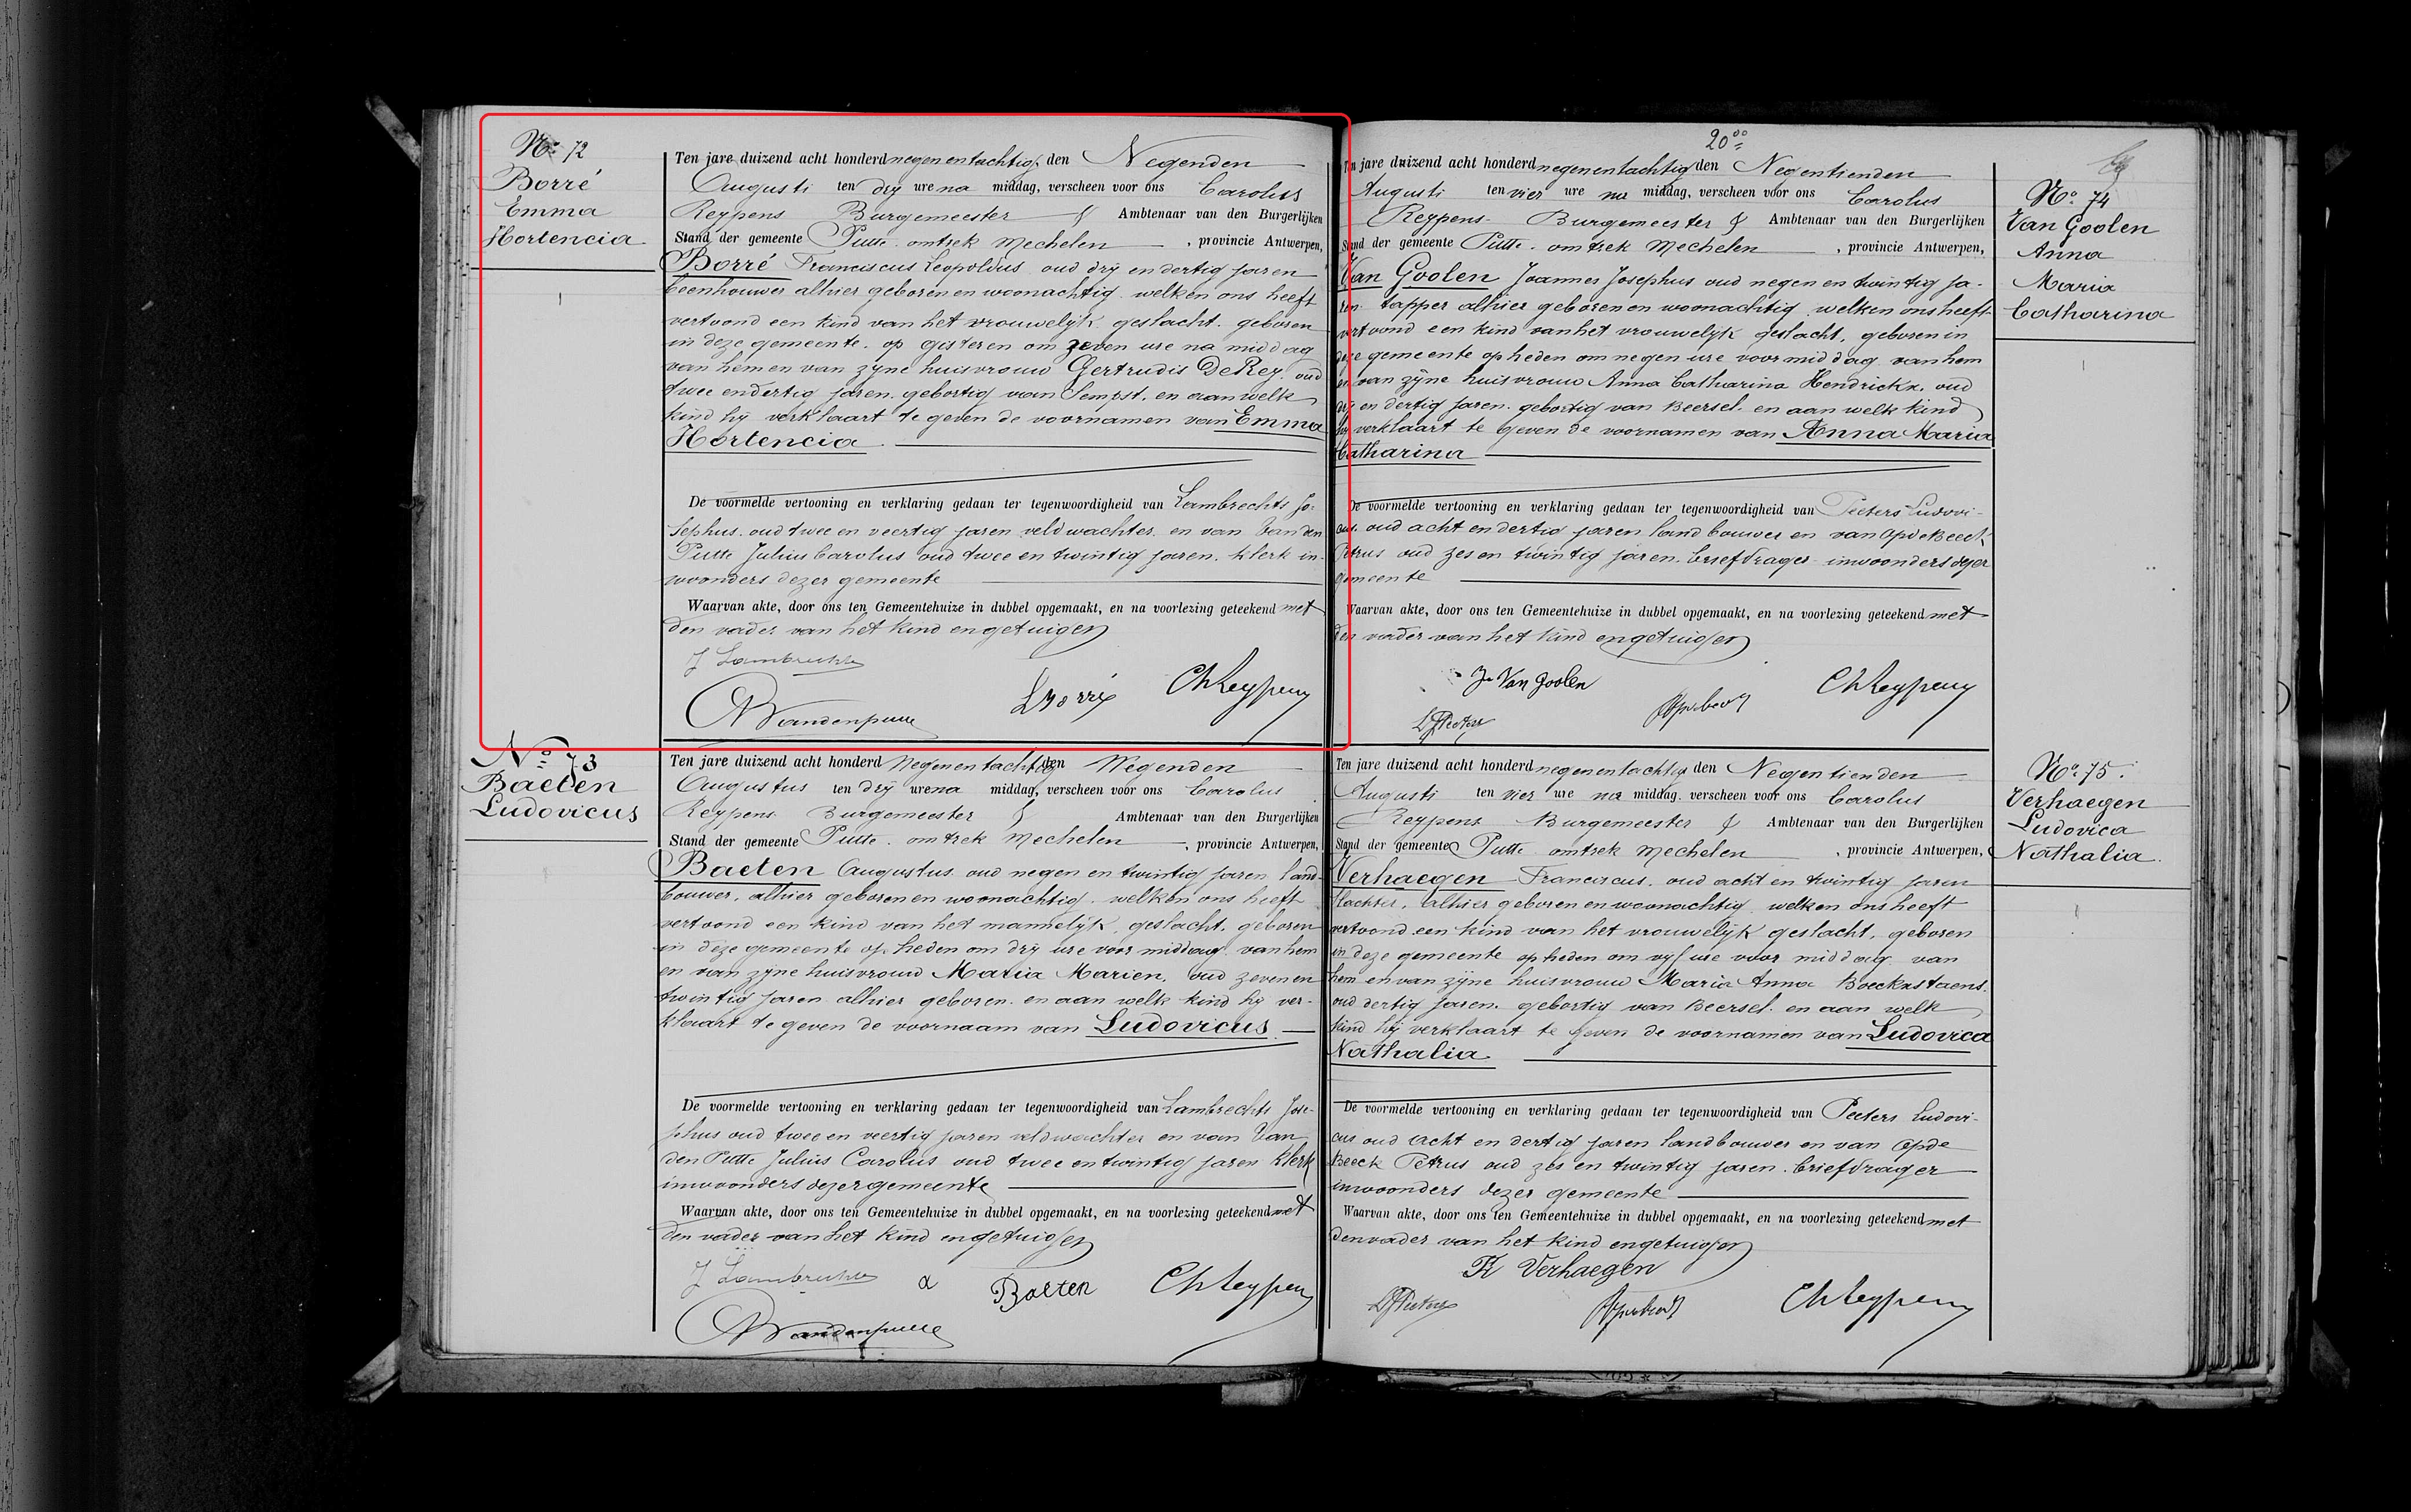 No. 72
Borré
Emma
Hortencia
Ten jare duizend acht honderd negenentachtig, den Negenden
Augusti ten dry ure na middag, verscheen voor ons Carolus
Reypens Burgemeester & Ambtenaar van den Burgerlijken
Stand der gemeente Putte. omtrek Mechelen, provincie Antwerpen,
Borré Franciscus Leopoldus oud dry en dertig jaren
beenhouwer alhier geboren en woonachtig welken ons heeft
vertoond een kind van het vrouwelyk geslacht. geboren
in deze gemeente. op gisteren om zeven ure na middag
van hem en van zyne huisvrouw Gertrudis De Rey. oud
twee en dertig jaren. gebortig van Sempst. en aan welk
kind hy verklaart te geven de voornamen van Emma
Hortencia.
De voormelde vertooning en verklaring gedaan ter tegenwoordigheid van Lambrechts Jo-
sephus. oud twee en veertig jaren veldwachter en van Van den
Putte Julius Carolus oud twee en twintig jaren. klerk in-
woonders dezer gemeente
Waarvan akte, door ons ten Gemeentehuize in dubbel opgemaakt, en na voorlezing geteekend met
den vader van het kind en getuigen
J Lambrechts
Vandenputte
L Borré
Ch Reypens
No. 73
Baeten
Ludovicus
Ten jare duizend acht honderd Negenentachtig den Negenden
Augustus ten dry ure na middag, verscheen voor ons Carolus
Reypens Burgemeester & Ambtenaar van den Burgerlijken
Stand der gemeente Putte. omtrek Mechelen, provincie Antwerpen,
Baeten Augustus oud negen en twintig jaren land-
bouwer. alhier geboren en woonachtig. welken ons heeft
vertoond een kind van het mannelyk geslacht. geboren
in deze gemeente op heden om dry ure voor middag van hem
en van zyne huisvrouw Maria Marien. oud zeven en
twintig jaren alhier geboren. en aan welk kind hy ver-
klaart te geven de voornaam van Ludovicus.
De voormelde vertooning en verklaring gedaan ter tegenwoordigheid van Lambrechts Jose-
phus oud twee en veertig jaren veldwachter en van Van
den Putte Julius Carolus oud twee en twintig jaren klerk
inwoonders dezer gemeente
Waarvan akte, door ons ten Gemeentehuize in dubbel opgemaakt, en na voorlezing geteekend met
den vader van het kind en getuigen
J Lambrechts
a Baeten
Ch Reypens
Vandenputte
20
Ten jare duizend acht honderd negenentachtig den Negentienden
Augusti ten vier ure na middag, verscheen voor ons Carolus
Reypens Burgemeester & Ambtenaar van den Burgerlijken
Stand der gemeente Putte. omtrek Mechelen, provincie Antwerpen,
Van Goolen Joannes Josephus oud negen en twintig ja-
ren tapper alhier geboren en woonachtig welken ons heeft
vertoond een kind van het vrouwelyk geslacht. geboren in
deze gemeente op heden om negen ure voor middag van hem
en van zyne huisvrouw Anna Catharina Hendrickx. oud
dry en dertig jaren. gebortig van Beersel. en aan welk kind
hy verklaart te geven de voornamen van Anna Maria
Catharina
De voormelde vertooning en verklaring gedaan ter tegenwoordigheid van Pieters Ludovi-
cus. oud acht en dertig jaren landbouwer en van Op de Beeck
Petrus oud zes en twintig jaren. briefdrager inwoonders dezer
gemeente
Waarvan akte, door ons ten Gemeentehuize in dubbel opgemaakt, en na voorlezing geteekend met
den vader van het kind en getuigen
Jn Van Goolen
Ch Reypens
L Pieters
No. 74
Van Goolen
Anna
Maria
Catharina
Ten jare duizend acht honderd negenentachtig den Negentienden
Augusti ten vier ure na middag, verscheen voor ons Carolus
Reypens Burgemeester & Ambtenaar van den Burgerlijken
Stand der gemeente Putte omtrek Mechelen, provincie Antwerpen,
Verhaegen Franciscus. oud acht en twintig jaren
slachter. alhier geboren en woonachtig welken ons heeft
vertoond een kind van het vrouwelyk geslacht. geboren
in deze gemeente op heden om vyf ure voor middag van
hem en van zyne huisvrouw Maria Anna Boeckstaens.
oud dertig jaren. gebortig van Beersel. en aan welk
kind hy verklaart te geven de voornamen van Ludovica
Nathalia.
De voormelde vertooning en verklaring gedaan ter tegenwoordigheid van Peeters Ludovi-
cus oud acht en dertig jaren landbouwer en van Op de
Beeck Petrus oud zes en twintig jaren. briefdrager
inwoonders dezer gemeente
Waarvan akte, door ons ten Gemeentehuize in dubbel opgemaakt, en na voorlezing geteekend met
den vader van het kind en getuigen
Fr Verhaegen
L Pieters
Ch Reypens
No. 75.
Verhaegen
Ludovica
Nathalia.